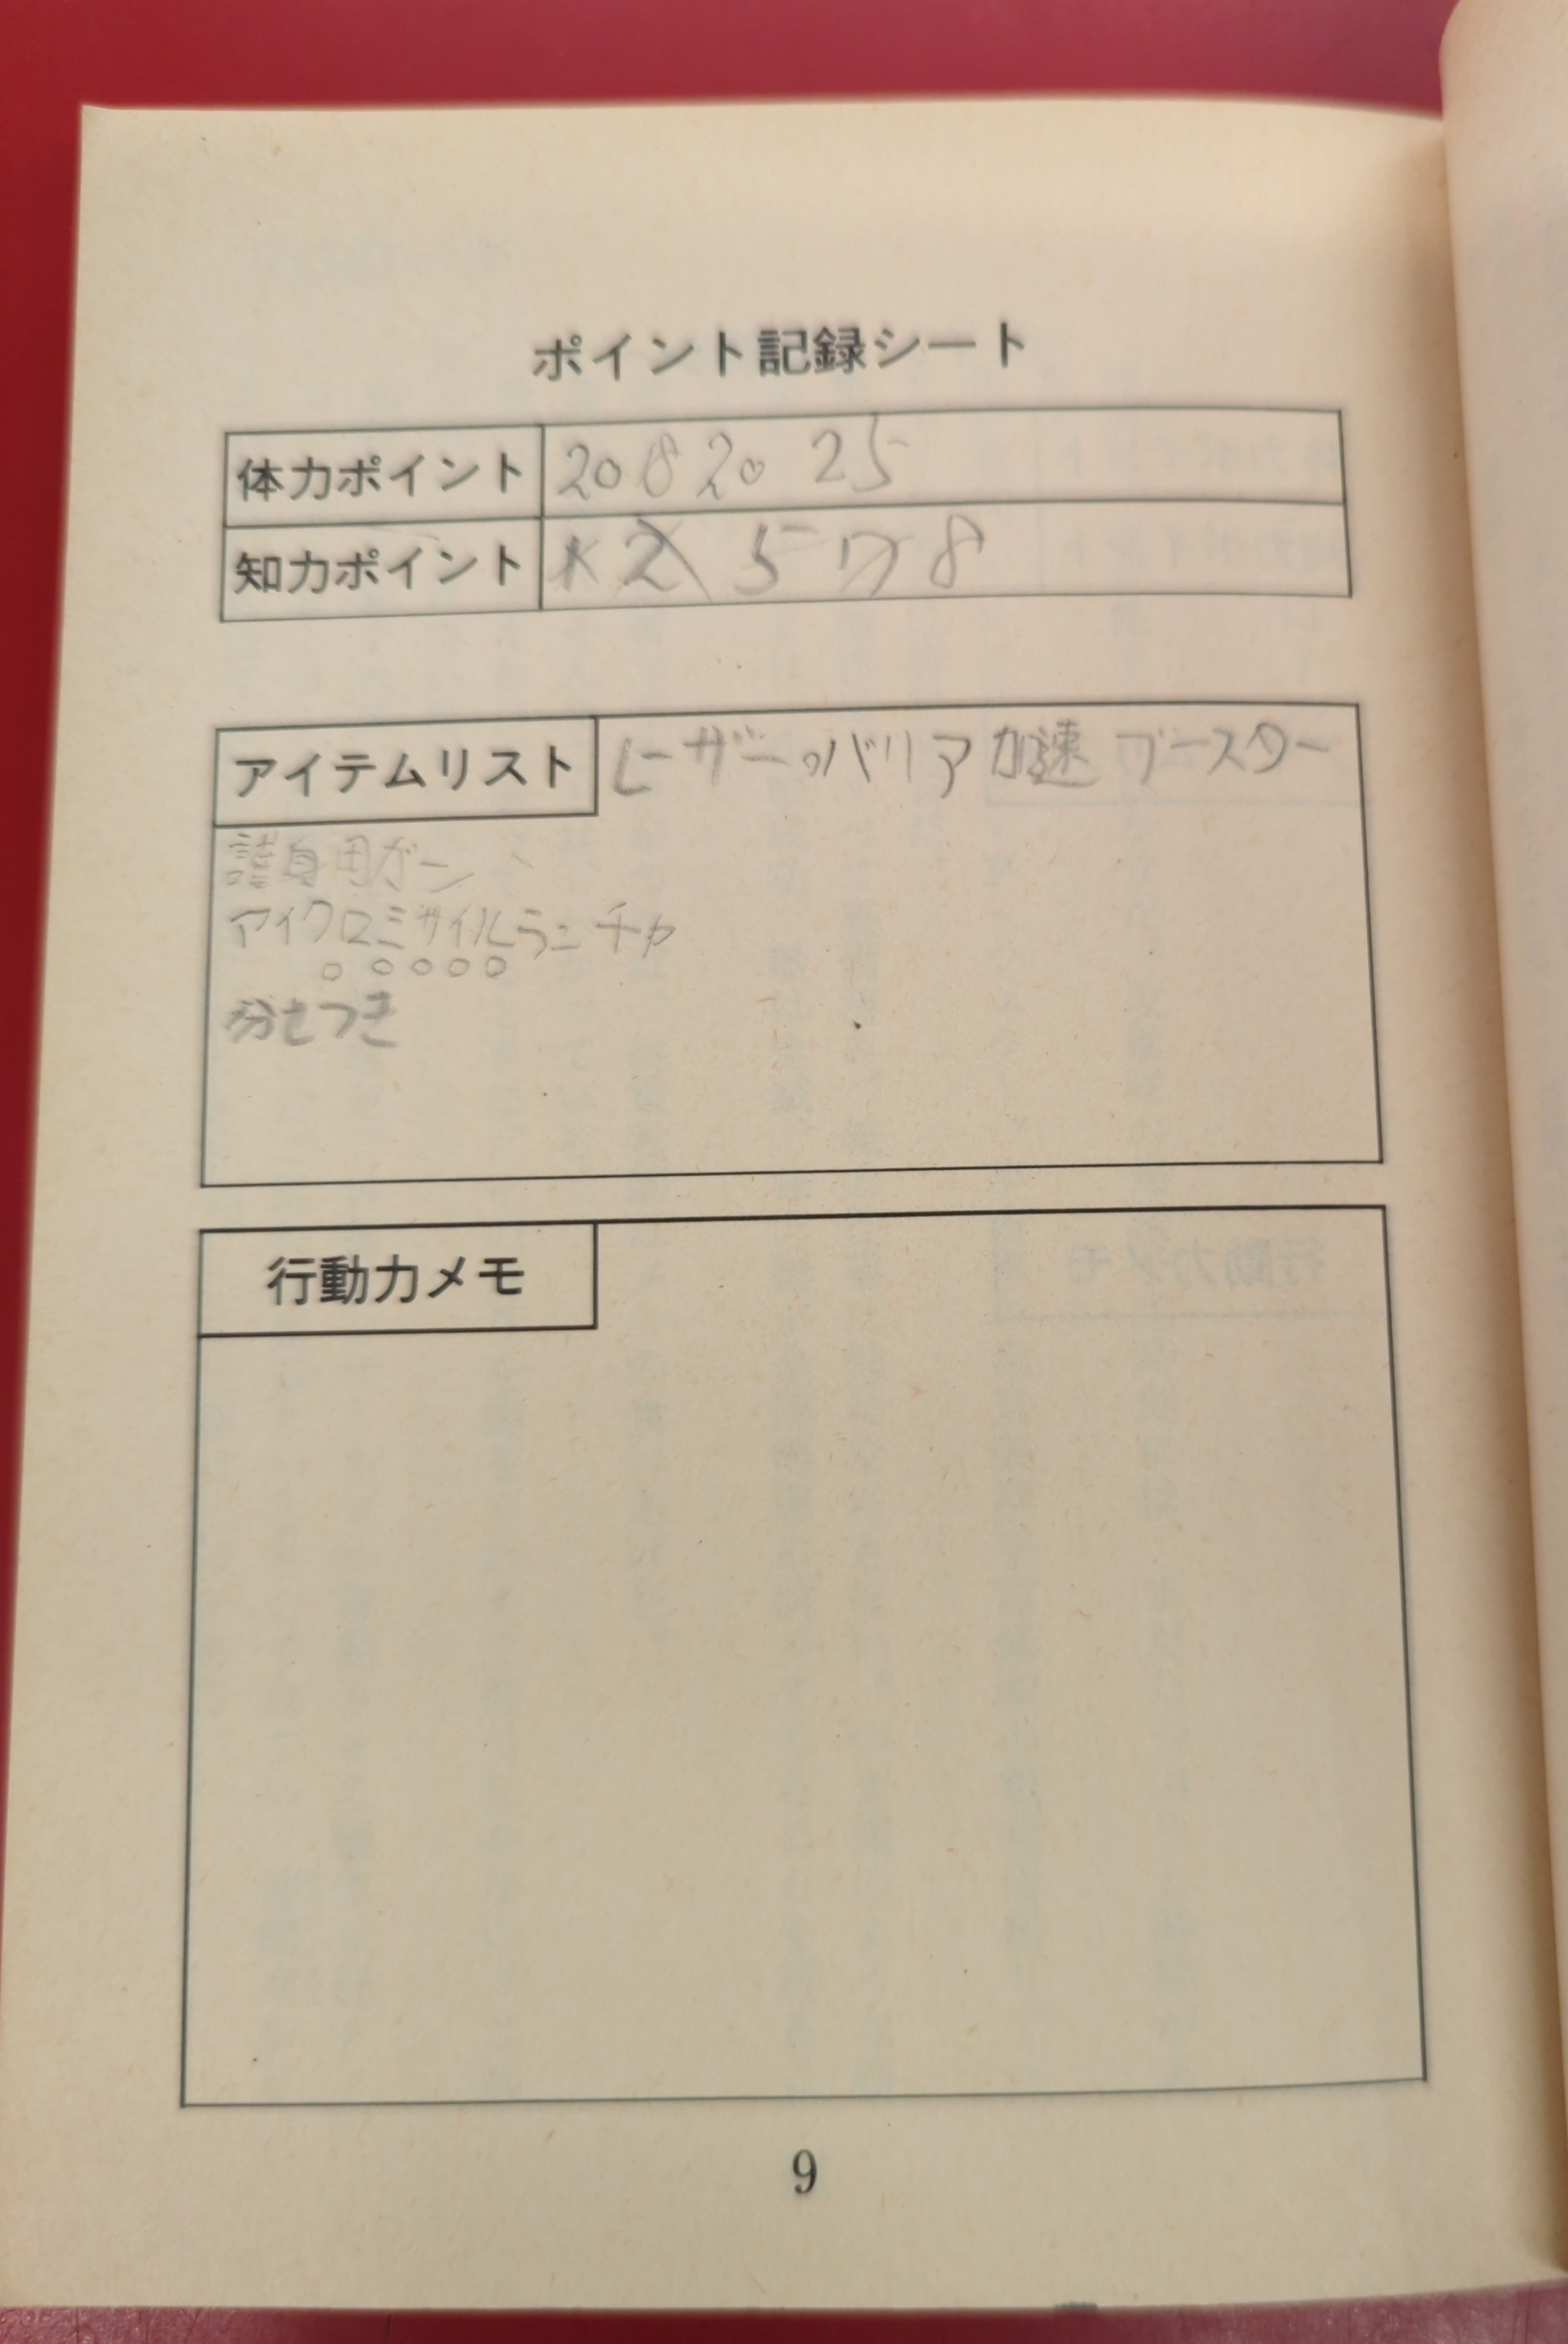 ポイント記録シート
体力ポイント 20 8 20 25
知力ポイント 2 5 7 8
アイテムリスト レーザー。バリア 加速 ブースター
護身用ガン
アイクロミサイルランチャ
○○○○○
分せつき
行動力メモ
9